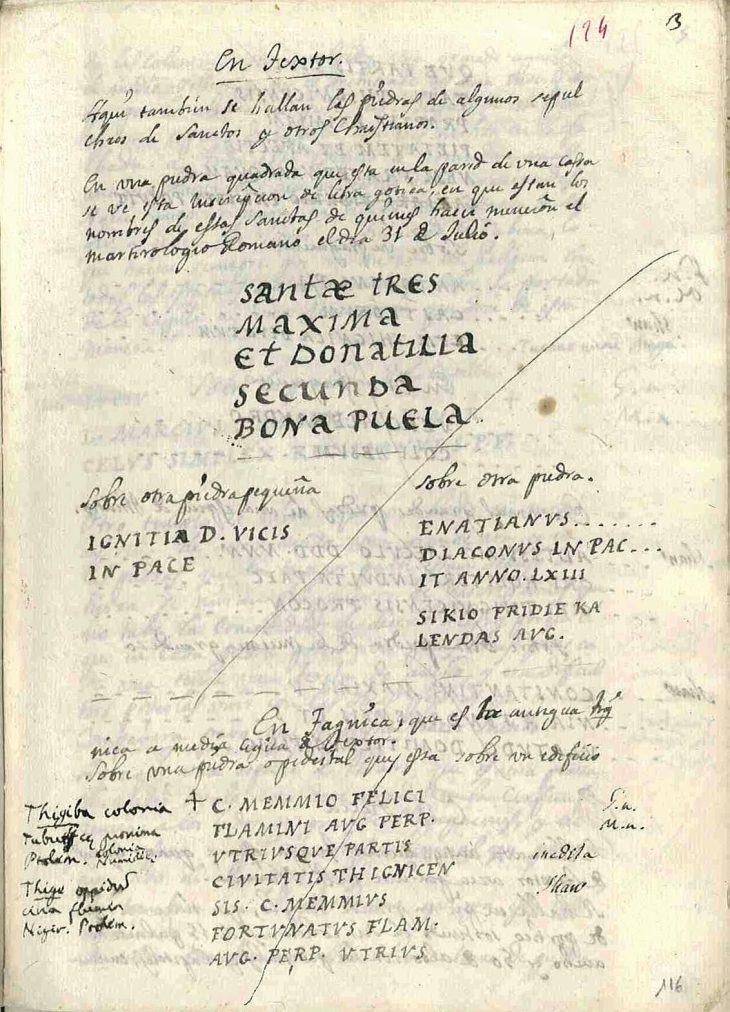 124
3
En Textor.
Aquí tambien se hallan las piedras de algunos sepul
chros de Sanctos y otros Christianos.
En vna piedra quadrada que esta en la pared de vna cassa
se ve esta inscripcion de letra gotica, en que estan los
nombres de estas Sanctas de quienes hace mencion el
martirologio Romano el dia 31 de Julio.
SANTÆ TRES
MAXIMA
ET DONATILLA
SECUNDA
BONA PUELA
Sobre otra piedra pequeña
IGNITIA D. VICIS
IN PACE
Sobre otra piedra.
ENATIANVS.......
DIACONVS IN PAC...
IT ANNO. LXIII
SIKIO PRIDIE KA
LENDAS AVG.
En Tagnica, que es la antigua
nica a media legua de Textor.
Sobre vna piedra o pidestal que esta sobre vn edificio
Thigiba colonia
colonia
Ptolem. Numidie.
Thige oppidum
Niger. Ptolem.
+ C. MEMMIO FELICI
FLAMINI AVG PERP.
VTRIVSQVE PARTIS
CIVITATIS THIGNICEN
SIS. C. MEMMIVS
FORTVNATVS FLAM.
AVG. PERP. VTRIVS
G.n.
M.n.
inedita
Shaw
116